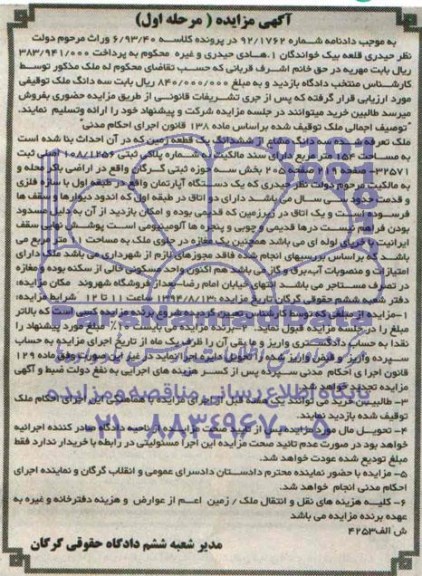 آگهی مزایده ( مرحله اول)
به موجب دادنامه شماره ۹۲/۱۷۶۲ در پرونده کلاسه ۶/۹۳/۴۰ وراث مرحوم دولت
نظر حیدری قلعه بیک خواندگان ۱.هادی حیدری و غیره محکوم به پرداخت ۳۸۳/۹۴۱/۰۰۰
ریال بابت مهریه در حق خانم اشرف قربانی که حسب تقاضای محکوم له ملک مذکور توسط
کارشناس منتخب دادگاه بازدید و به مبلغ ۸۴۰/۰۰۰/۰۰۰ ریال بابت سه دانگ ملک توقیفی
مورد ارزیابی قرار گرفته که پس از جری تشریفات قانونی از طریق مزایده حضوری بفروش
میرسد طالبین خرید میتوانند در جلسه مزایده شرکت و پیشنهاد خود را ارائه وتسلیم نمایند.
"توصیف اجمالی ملک توقیف شده براساس ماده ۱۳۸ قانون اجرای احکام مدنی"
ملک تعرفه شده دانگ مشاع از ششدانگ یک قطعه زمین که در آن احداث بنا شده است
به مساحت ۱۵۴ متر مربع دارای سند مالکیت به شماره پلاک ثبتی ۱۰۸/۱۲۵۶ اصلی ثبت
۳۲۵۷۱ صفحه ۲۱۹ دفتر ۲۰۵ بخش حوزه ثبتی گرگان واقع در اراضی باکر محله و
به مالکیت مرحوم دولت نظر حیدری که یک دستگاه آپارتمان واقع در طبقه اول با سازه فلزی
و قدمت حدود سی سال می باشد. دارای دو اتاق در طبقه اول که اندود دیوارها و سقف ها
فرسوده است و یک اتاق در زیرزمین که قدیمی بوده و امکان بازدید از آن به دلیل مسدود
بودن فراهم نیست درها قدیمی و چوبی و پنجره ها آلومینیومی است پوشش نهایی سقف
ایرانیت و خرپای لوله ای می باشد همچنین یک مغازه در جلوی ملک به مساحت ۱۰ متر مربع می
باشد که براساس بررسیهای انجام شده فاقد مجوزهای لازم از شهرداری می باشد ملک دارای
امتیازات و منصوبات آب،برق و گاز می باشد هم اکنون واحد مسکونی خالی از سکنه بوده و مغازه
در تصرف مستاجر می باشد. انتهای خیابان امام رضا-سردار فروشگاه شهروند مکان مزایده:
دفتر شعبه ششم حقوقی گرگان تاریخ مزایده: ۱۳۹۴/۸/۱۳ ساعت ۱۱ تا ۱۲ شرایط مزایده:
۱-مزایده از مبلغی که توسط کارشناس تعیین گردیده شروع برنده مزایده کسی است که بالاتر
مبلغ را در جلسه مزایده قبول نماید. ۲-برنده مزایده می بایست ۱۰٪ مبلغ مورد پیشنهاد را
نقدا به حساب دادگستری واریز و مابقی آن را ظرف یک ماه از تاریخ اجرای مزایده به حساب
سپرده واریز و فیش واریز شده را تحویل دایره اجرا نماید در غیر این صورت وفق ماده ۱۲۹
قانون اجرای احکام مدنی سپرده پس از کسر هزینه های اجرایی به نفع دولت ضبط و آگهی
مزایده تجدید خواهد شد.
۳- طالبین خرید می توانند یک هفته قبل از اجرای مزایده با هماهنگی این اجرای احکام ملک
توقیف شده بازدید نمایند.
۴- تحویل مال مورد مزایده پس از تائید صحت مزایده از ناحیه دادگاه صادر کننده اجرائیه
خواهد بود در صورت عدم تائید صحت مزایده این اجرا مسئولیتی در رابطه با خریدار ندارد فقط
مبلغ تودیع شده عودت خواهد شد.
۵- مزایده با حضور نماینده محترم دادستان دادسرای عمومی و انقلاب گرگان و نماینده اجرای
احکام مدنی انجام خواهد شد.
۶- کلیه هزینه های نقل و انتقال ملک / زمین اعم از عوارض و هزینه دفترخانه و غیره به
عهده برنده مزایده می باشد
ش الف۴۲۵۳
مدیر شعبه ششم دادگاه حقوقی گرگان
پایگاه اطلاع رسانی مناقصه و مزایده
۰۲۱-۸۸۳۴۹۶۷۰-۵